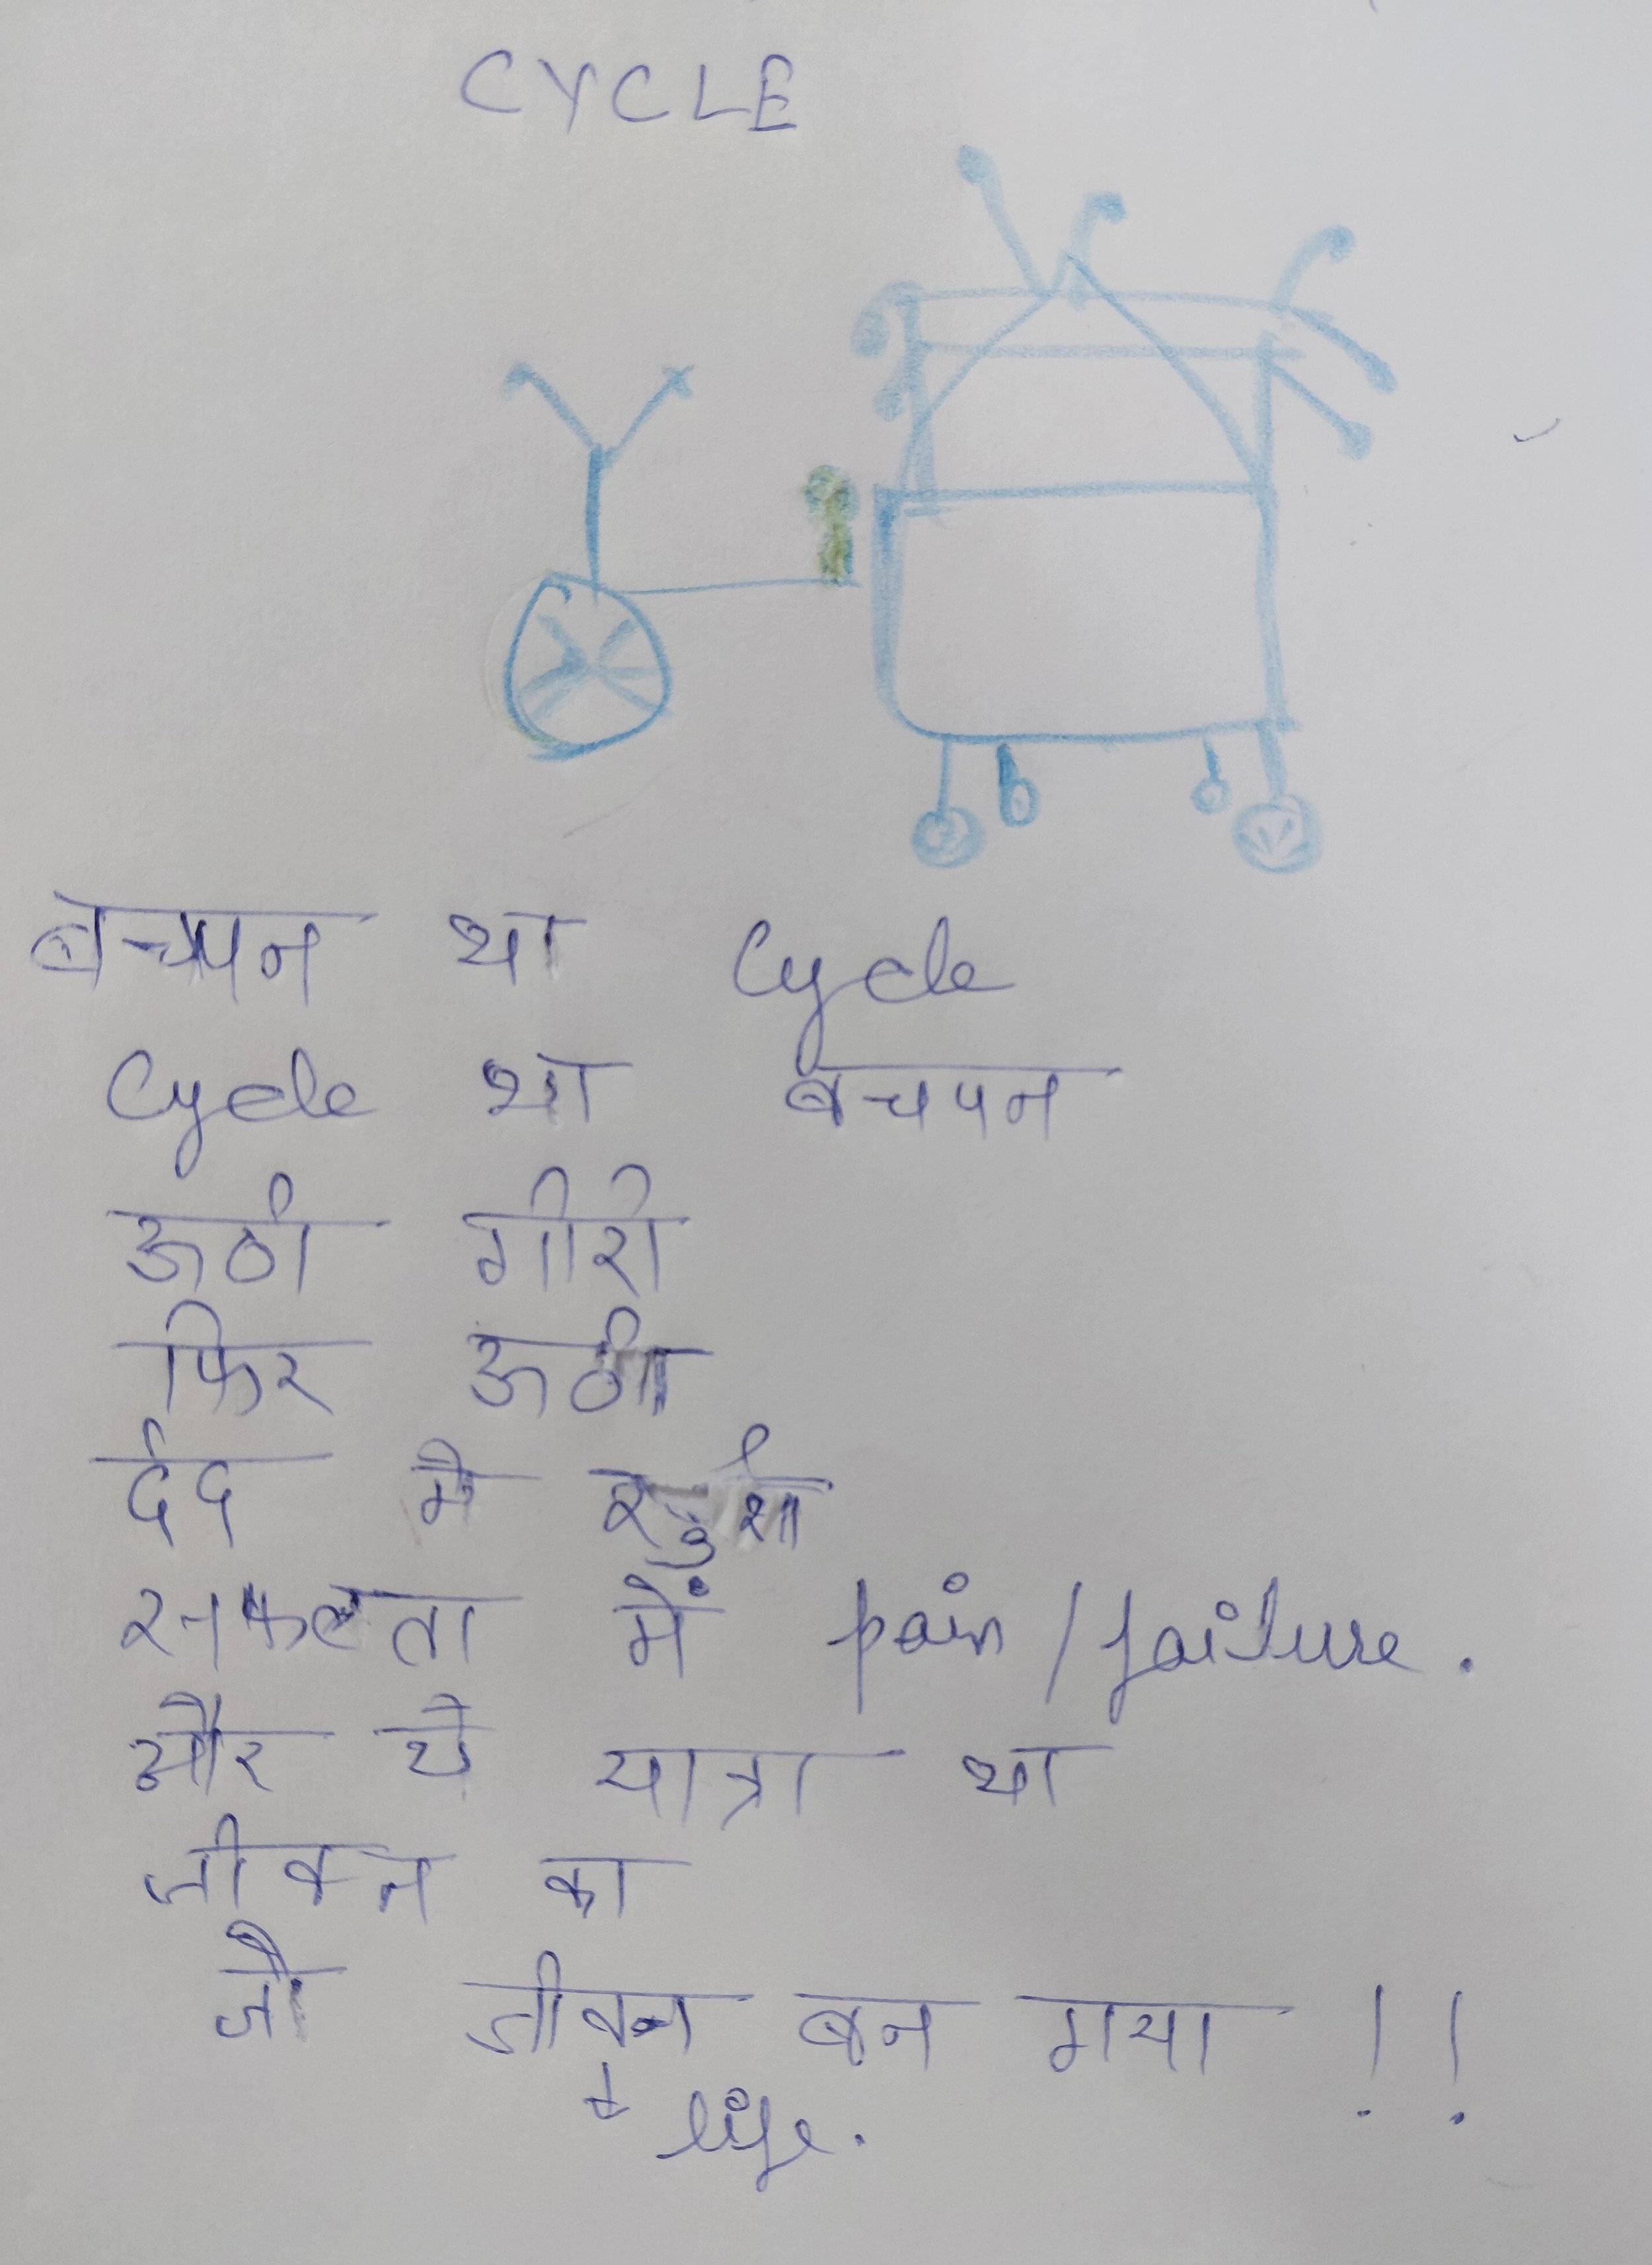 CYCLE
बचपन था Cycle
Cycle था बचपन
ऊठी गीरी
फिर ऊठी
र्दद मे खुशी
सफलता में pain / failure.
और ये यात्रा था
जीवन का
जौ जीवन बन गया !!
life.